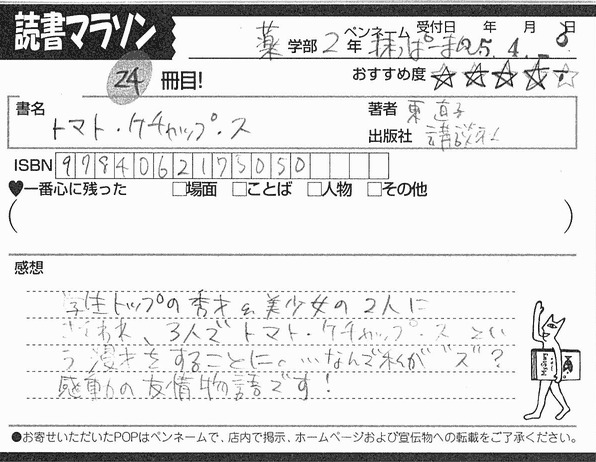 読書マラソン
薬 学部 2 年 ペンネーム 受付日 年 月 日
25. 4. 8
24 冊目!
おすすめ度 ★★★★☆
書名 トマト・ケチャップ・ス
著者 東 直子
出版社 講談社
ISBN 9784062173050
♥一番心に残った □場面 □ことば □人物 □その他
( )
感想
学年トップの秀才&美少女の2人に
さそわれ、3人でトマト・ケチャップ・スとい
う漫才をすることに。…なんで私が"ス"?
感動の友情物語です!
●お寄せいただいたPOPはペンネームで、店内で掲示、ホームページおよび宣伝物への転載をご了承ください。